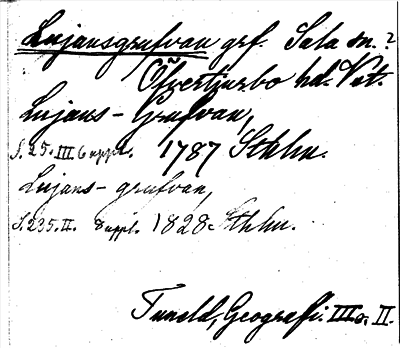 Lujansgrufvan grf. Sala sn.?
Öfvertjurbo hd. Vstm.
Lujans-Grufvan,
S. 25. III. 6 uppl. 1787 Sthlm.
Lujans-grufvan,
S. 235. II. 8 uppl. 1828 Sthlm.
Tuneld, Geografi. III o. II.